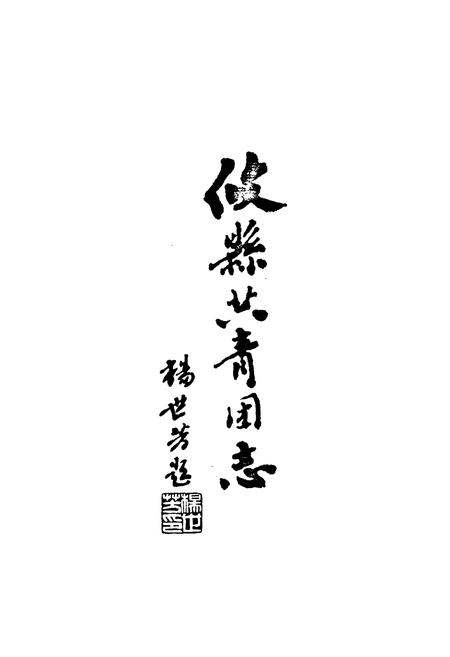 攸縣共青团志
楊世芳題
楊世芳印